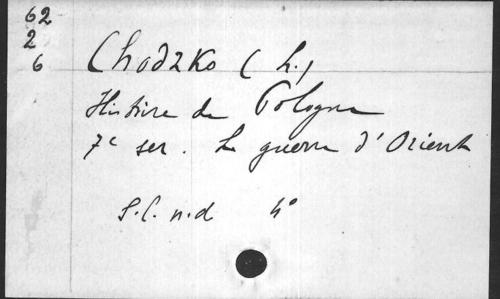 62
2
6
Chodzko (L.)
Histoire de Pologne
7e ser. La guerre d'Orient
S.l. n.d 4°